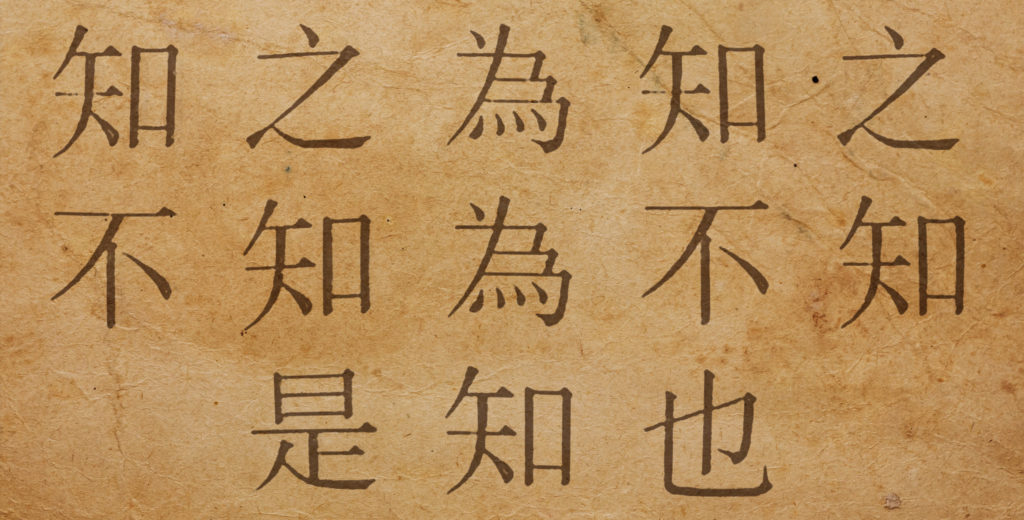 知之為知之
不知為不知
是知也